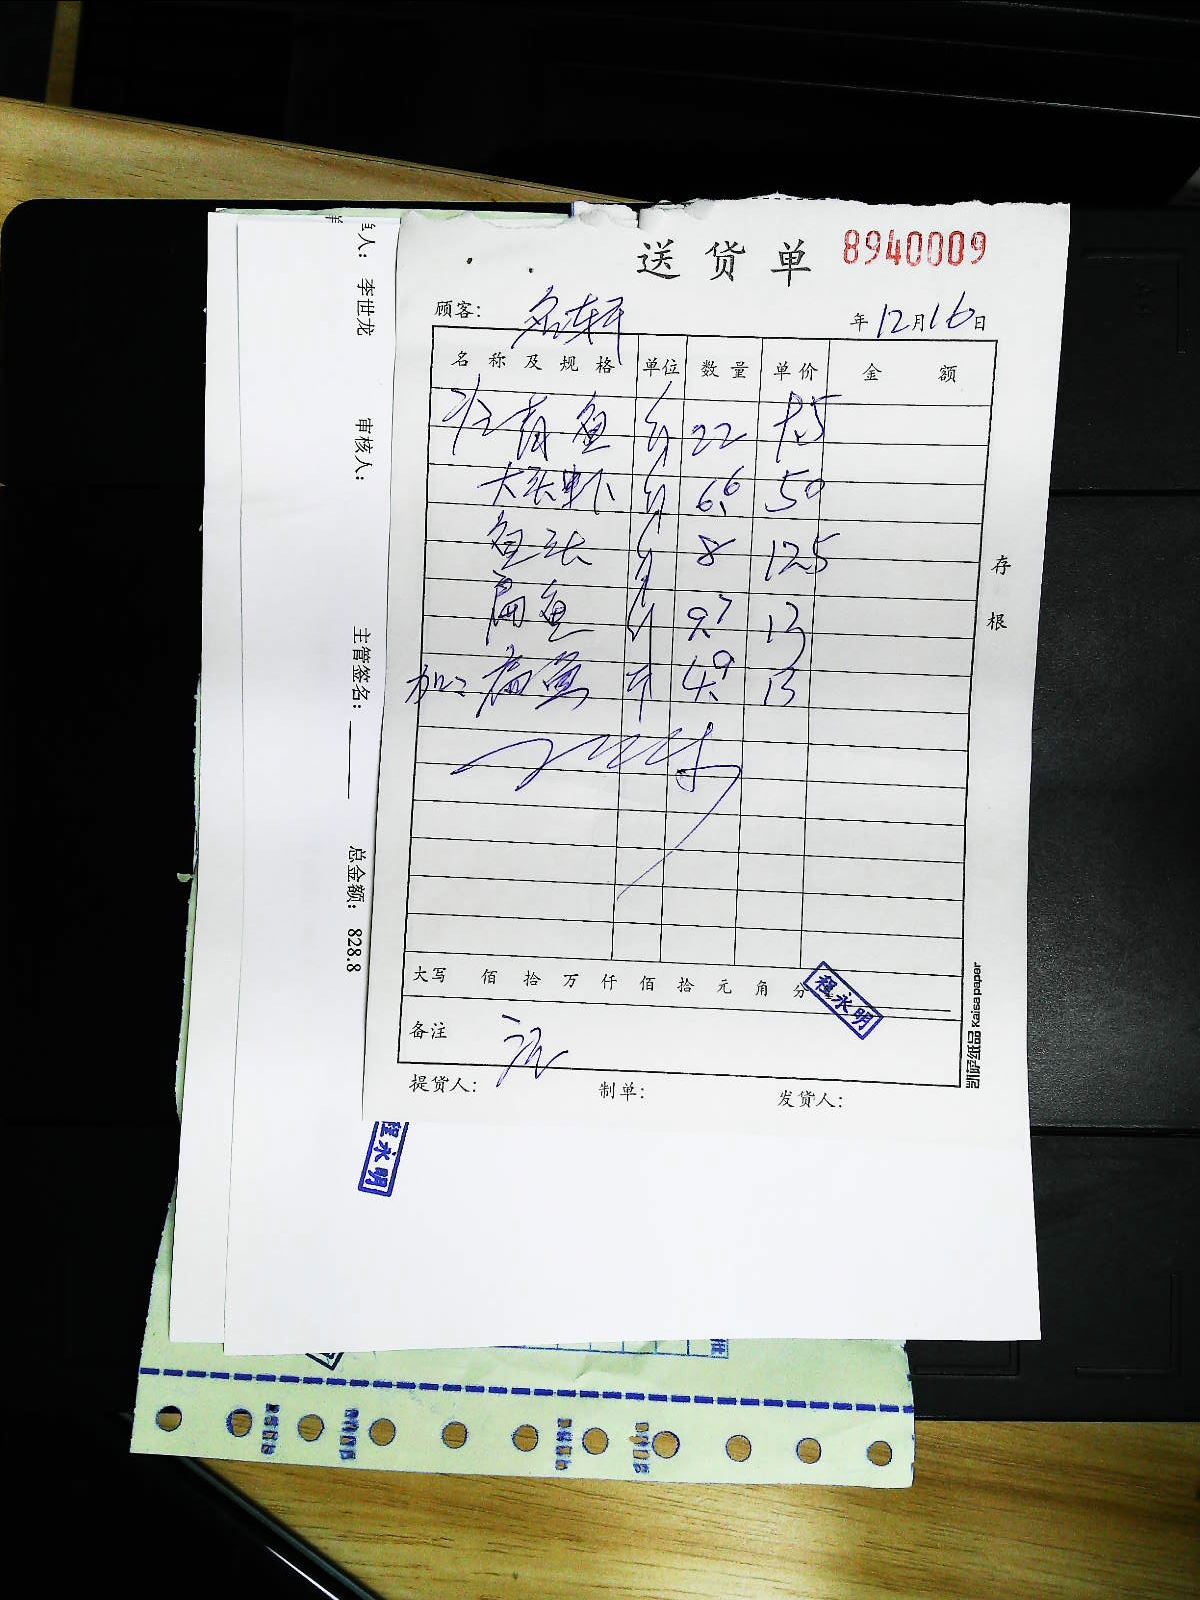 送货单 8940009
顾客: 名轩 年12月16日
名称及规格 单位 数量 单价 金额
青鱼 斤 22 7.5
大头虾 斤 6.6 50
鱼 斤 8 12.5
扁鱼 斤 9.7 13
加: 扁鱼 斤 4.9 13
存根
大写 佰 拾 万 仟 佰 拾 元 角 分
程永明
备注
提货人: 制单: 发货人:
凯萨纸品 Kaisa paper
人: 李世龙 审核人: 主管签名: 总金额: 828.8
程永明